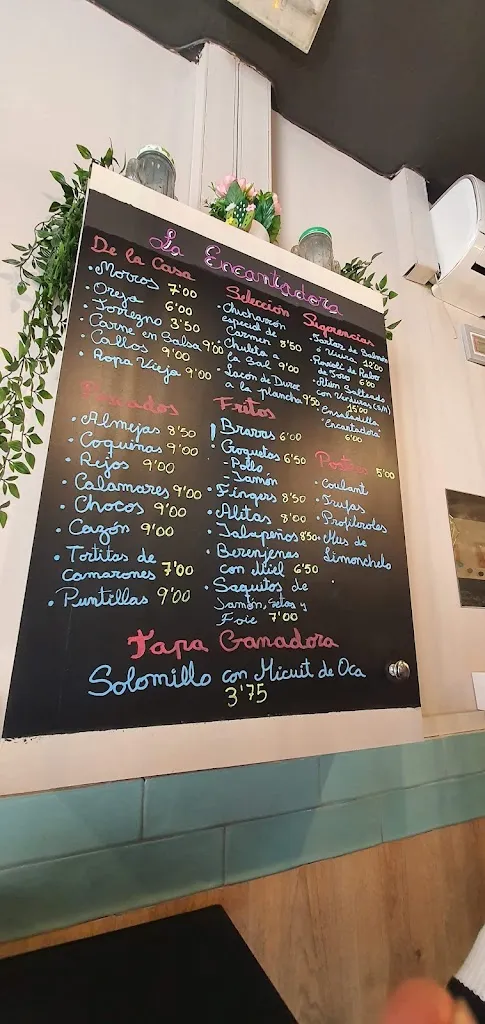 La Encantadora
De la Casa
· Morros 7'00
· Oreja 6'00
· Torrezno 3'50
· Carne en Salsa 9'00
· Callos 9'00
· Ropa Vieja 9'00
Pescados
· Almejas 8'50
· Coquinas 9'00
· Rejos 9'00
· Calamares 9'00
· Chocos 9'00
· Cazón 9'00
· Tortitas de
camarones 7'00
· Puntillas 9'00
Selección
· Chicharrón
especial de
Carmen 8'50
· Chuleta a
la Sal 9'00
· Lacón de Duroc
a la plancha 9'50
Fritos
· Bravas 6'00
· Croquetas 6'50
- Pollo
- Jamón
· Fingers 8'50
· Alitas 8'00
· Jalapeños 8'50
· Berenjenas
con Miel 6'50
· Saquitos de
Jamón, Setas y
Foie 7'00
Sugerencias
· Tartar de Salmón
12'00
· Ravioli de Rabo
de Toro 6'00
· Atún Salteado
con Verduras (S/N)
15'00
· Ensaladilla
"Encantadora"
6'00
Postres 5'00
· Coulant
· Trufas
· Profiteroles
· Mus de
Limonchelo
Tapa Ganadora
Solomillo con Micuit de Oca
3'75